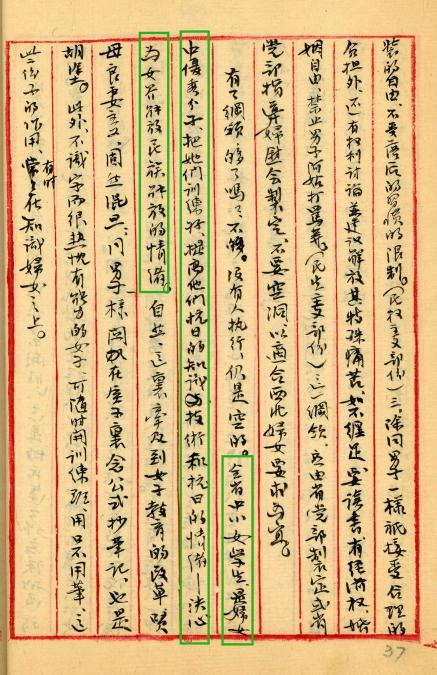 装的自由、不受落后的习惯的限制。（民权主义部份）三、除同男子一样祇接受合理的
合担外、还有权利讨论并建议解放其特殊痛苦、如不缠足要读书有经济权、婚
姻自由、禁止男子阿姑打骂等（民生主义部份）。这纲领、应由省党部制定或省
党部指导妇慰会制定、不要空洞、以适合西北妇女要求为宜。
有了纲领够了吗？不够。没有人执行、仍是空的。全省中小女学生是妇女
中优秀分子、把她们训练好、提高他们抗日的知识与技术和抗日的情绪——决心
与女界解放民族解放的情绪。自然、这里牵及到女子教育的改革、贤
母良妻主义、固然混旦、同男子一样关放在房子里念公式抄笔记、也是
胡闹。此外、不识字而很热忱有能力的女子、可随时开训练班、用口不用笔、这
些份子的作用、有时常常在知识妇女之上。
37